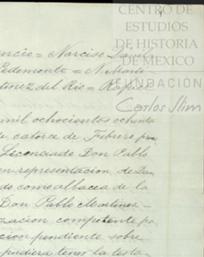 CENTRO DE
ESTUDIOS
DE HISTORIA
DE MEXICO
FUNDACIÓN
Carlos Slim
encio = Narciso
Edemonte = N. Monte
tinez del Rio = Rafael
mil ochocientos ochenta
de catorce de Febrero
Licenciado Don Pablo
en representacion de
do como albacea de la
Don Pablo Martinez
zacion competente
cion pendiente sobre
pudiera tener la testa